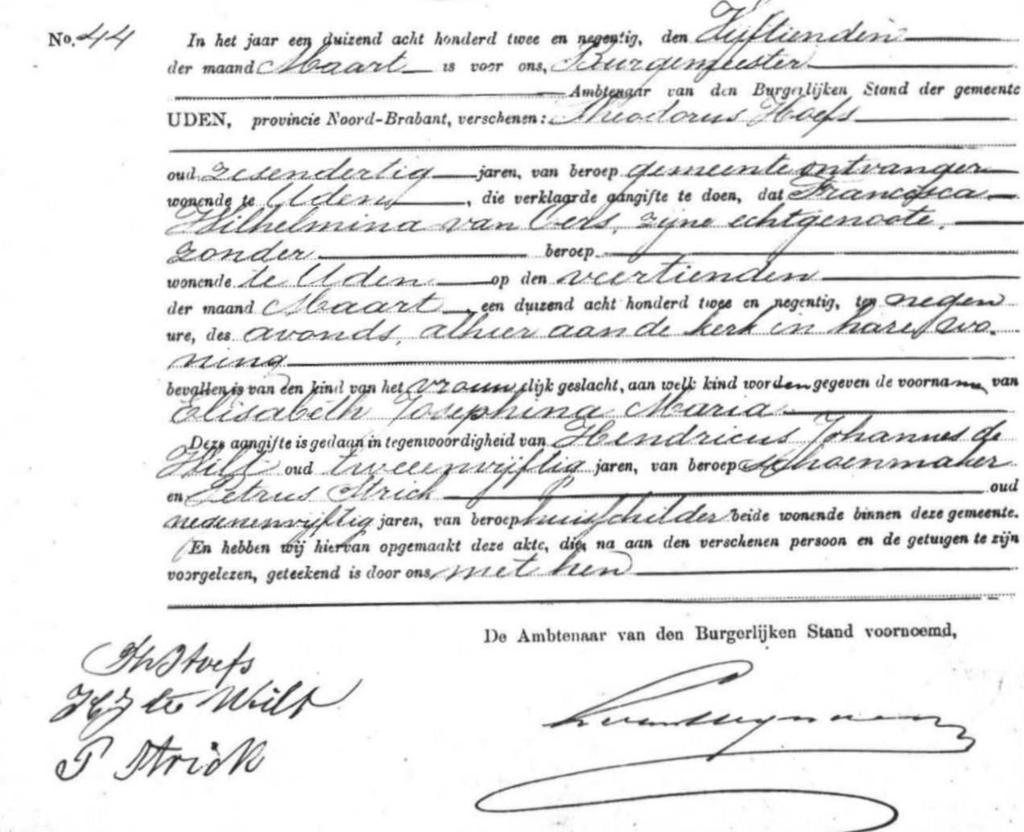 No. 44 In het jaar een duizend acht honderd twee en negentig, den Vijftienden
der maand Maart is voor ons, Burgemeester
Ambtenaar van den Burgerlijken Stand der gemeente
UDEN, provincie Noord-Brabant, verschenen: Theodorus Hoefs
oud zesendertig jaren, van beroep gemeenteontvanger
wonende te Uden, die verklaarde aangifte te doen, dat Francisca
Wilhelmina van Oers, zijne echtgenoote,
zonder beroep
wonende te Uden op den veertienden
der maand Maart, een duizend acht honderd twee en negentig, ten negen
ure, des avonds, alhier aan de kerk in hare wo-
ning
bevallen is van een kind van het vrouwelijk geslacht, aan welk kind worden gegeven de voorname, van
Elisabeth Josephina Maria
Deze aangifte is gedaan in tegenwoordigheid van Hendricus Johannes de
Wilt oud tweeenvijftig jaren, van beroep schoenmaker
en Petrus Strick oud
negenenvijftig jaren, van beroep huisschilder beide wonende binnen deze gemeente.
En hebben wij hiervan opgemaakt deze akte, die, na aan den verschenen persoon en de getuigen te zijn
voorgelezen, geteekend is door ons, met hen
De Ambtenaar van den Burgerlijken Stand voornoemd,
Th Hoefs
HJ de Wilt
P Strick